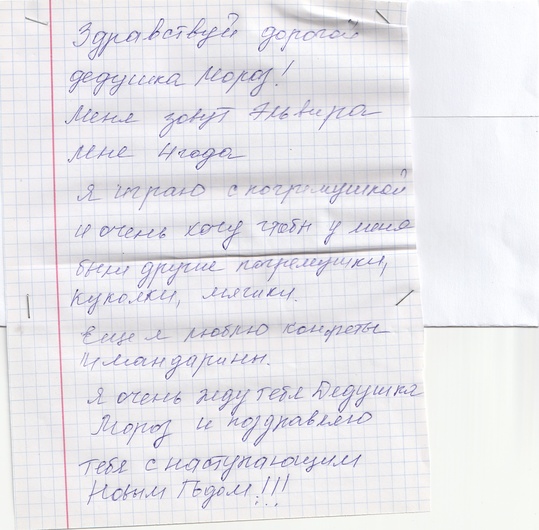 Здравствуй дорогой
дедушка Мороз!
Меня зовут Эльвира
мне 4 года
Я играю с погремушкой
и очень хочу чтобы у меня
были другие погремушки,
куколки, мячики.
Еще я люблю конфеты
и мандарины.
Я очень жду тебя Дедушка
Мороз и поздравляю
тебя с наступающим
Новым Годом!!!